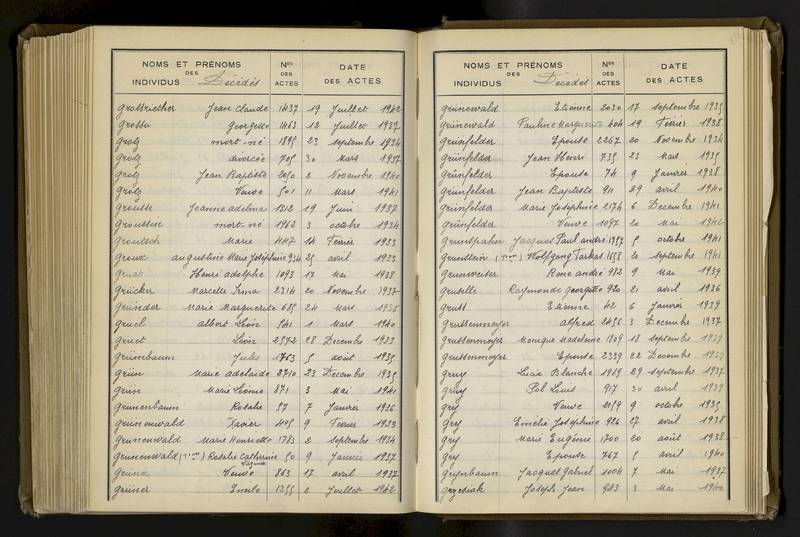 NOMS ET PRÉNOMS DES INDIVIDUS Décédés Nos DES ACTES DATE DES ACTES
Grostriether Jean Claude 1437 19 Juillet 1942
Grotta Georgette 1463 12 Juillet 1937
Grotz mort-né 1895 23 septembre 1934
Grotz divorcée 705 30 Mars 1937
Grotz Jean Baptiste 2050 2 Novembre 1940
Grotz Veuve 501 11 Mars 1941
Jeanne adelina 1312 19 Juin 1937
mort né 1962 3 octobre 1934
Marie 447 14 Février 1933
augustine Marie Joséphine 934 25 avril 1933
Gruat Henri adolphe 1093 17 Mai 1938
Grücker Marcelle Irma 2314 20 Novembre 1937
Gründer Marie Marguerite 685 24 Mars
Gruel albert Léon 541 1 Mars 1940
Gruet Léon 2572 28 Décembre 1933
Grümbaum Jules 1753 5 août 1935
Grün Marie adelaide 2710 23 Décembre 1935
Grün Marie Léonie 871 3 Mai 1941
Grunenbaum Rosalie 57 7 Janvier 1936
Grünenwald Xavier 405 9 Février 1933
Grunenwald Marie Henriette 1783 2 septembre 1934
Grunenwald Rosalie Catherine 50 9 Janvier 1937
Veuve 863 17 avril 1937
Grüner Emile 1355 2 Juillet 1942
NOMS ET PRÉNOMS DES INDIVIDUS Décédés Nos DES ACTES DATE DES ACTES
Grünewald Etienne 2030 17 septembre 1935
Grünewald Pauline Marguerite 404 19 Février 1938
Grünfelder Epouse 2267 20 Novembre 1934
Grünfelder Jean Henri 735 23 Mars 1935
Grünfelder Epouse 74 9 Janvier 1938
Grünfelder Jean Baptiste 911 29 avril 1940
Grünfelder Marie Joséphine 2174 6 Décembre 1941
Grünfelder Veuve 1097 20 Mai 1942
Grunspahn Jacques Paul andré 1757 5 octobre 1941
Grunstein Wolfgang Farkas 1658 20 septembre 1941
Grunweiser René andré 982 9 Mai 1939
Gruselle Raymonde Georgette 920 21 avril 1936
Etienne 42 6 Janvier 1939
Grussenmeyer alfred 2456 3 Décembre 1937
Grussenmeyer Monique Madeleine 1809 18 septembre 1939
Grussenmeyer Epouse 2339 22 Décembre 1939
Gruy Lucie Blanche 1959 29 septembre 1937
Gruy Pol Louis 917 30 avril 1939
Gry Veuve 2159 9 octobre 1935
Gry Emélie Joséphine 926 27 avril 1938
Gry Marie Eugénie 1700 20 août 1938
Gry Epouse 767 5 avril 1940
Jacques Gabriel 1004 7 Mai 1937
Grzesiak Joseph Jean 983 3 Mai 1940